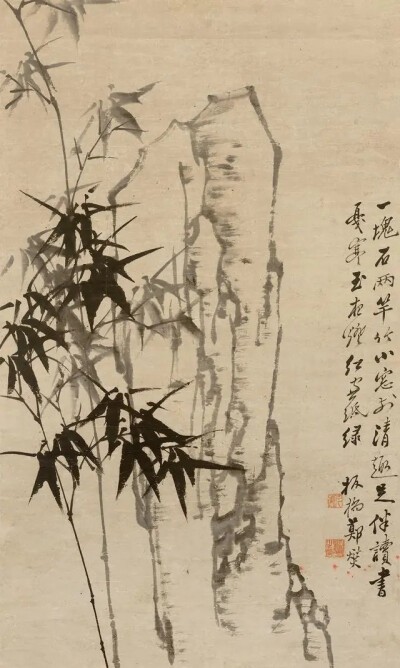 一塊石兩竿竹小窓外清趣足伴讀書
戛寒玉夜燈紅窗紙綠
板橋鄭燮